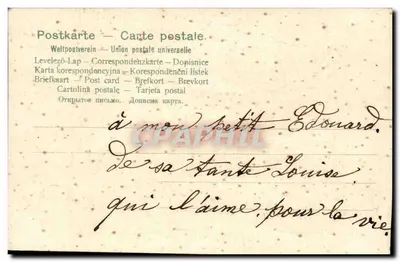 Postkarte — Carte postale
Weltpostverein — Union postale universelle
Levelező-Lap — Correspondenzkarte — Dopisnice
Karta korespondencyjna — Korespondenční lístek
Briefkaart — Post card — Brefkort — Brevkort
Cartolina postale — Tarjeta postal
Открытое письмо. Дописна карта.
CPAPHIL
à mon petit Edouard.
de sa tante Louise
qui l'aime pour la vie.